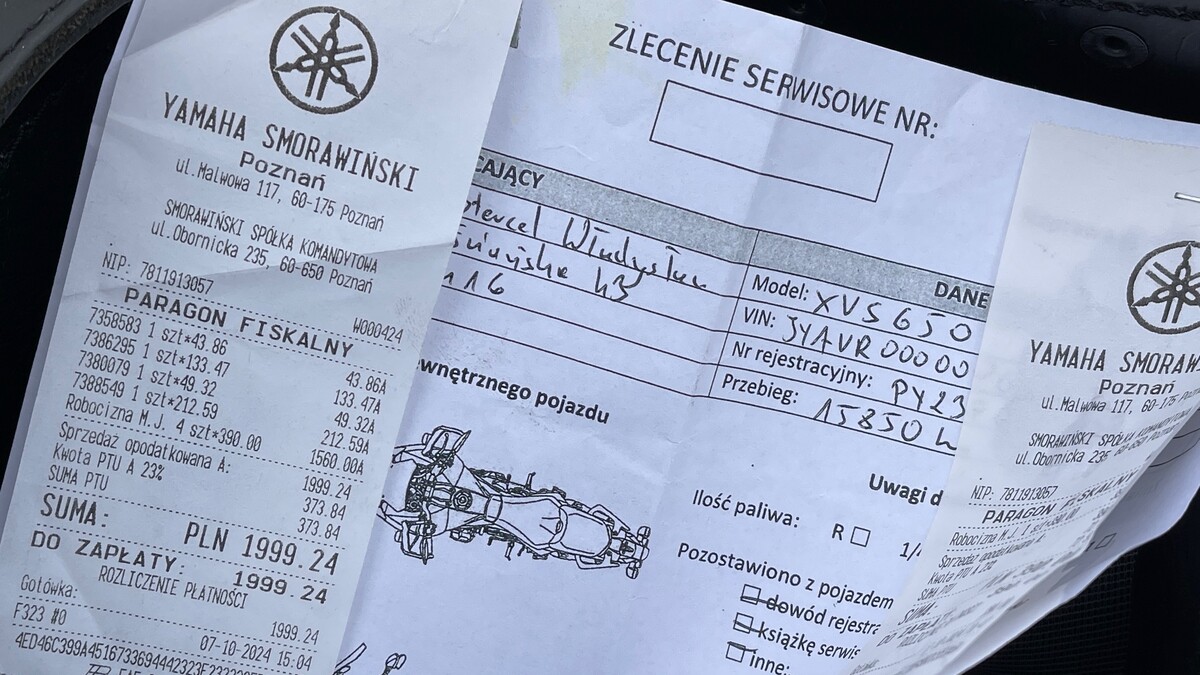 YAMAHA SMORAWIŃSKI
Poznań
ul.Malwowa 117, 60-175 Poznań
SMORAWIŃSKI SPÓŁKA KOMANDYTOWA
ul.Obornicka 235, 60-650 Poznań
NIP: 7811913057
W000424
PARAGON FISKALNY
7358583 1 szt*43.86 43.86A
7386295 1 szt*133.47 133.47A
7380079 1 szt*49.32 49.32A
7388549 1 szt*212.59 212.59A
Robocizna M.J. 4 szt*390.00 1560.00A
Sprzedaż opodatkowana A: 1999.24
Kwota PTU A 23% 373.84
SUMA PTU 373.84
SUMA: PLN 1999.24
DO ZAPŁATY: 1999.24
ROZLICZENIE PŁATNOŚCI
Gotówka: 1999.24
F323 #0 07-10-2024 15:04
ZLECENIE SERWISOWE NR:
CAJĄCY
Władysław
43
116
DANE
Model: XVS650
VIN: JYAVR00000
Nr rejestracyjny: PY23
Przebieg: 15850
wnętrznego pojazdu
Uwagi d
Ilość paliwa: R 1/
Pozostawiono z pojazdem
dowód rejestra
książkę serwis
inne:
YAMAHA SMORAW
Poznań
ul.Malwowa 117, 60-175
SMORAWIŃSKI SPÓŁKA KOMANDYT
ul.Obornicka 235, 60-650
NIP: 7811913057
PARAGON FISKALNY
Robocizna M.J.
Sprzedaż opodatkowana A:
Kwota PTU A 23%
SUMA PTU
SUMA:
DO ZAPŁATY